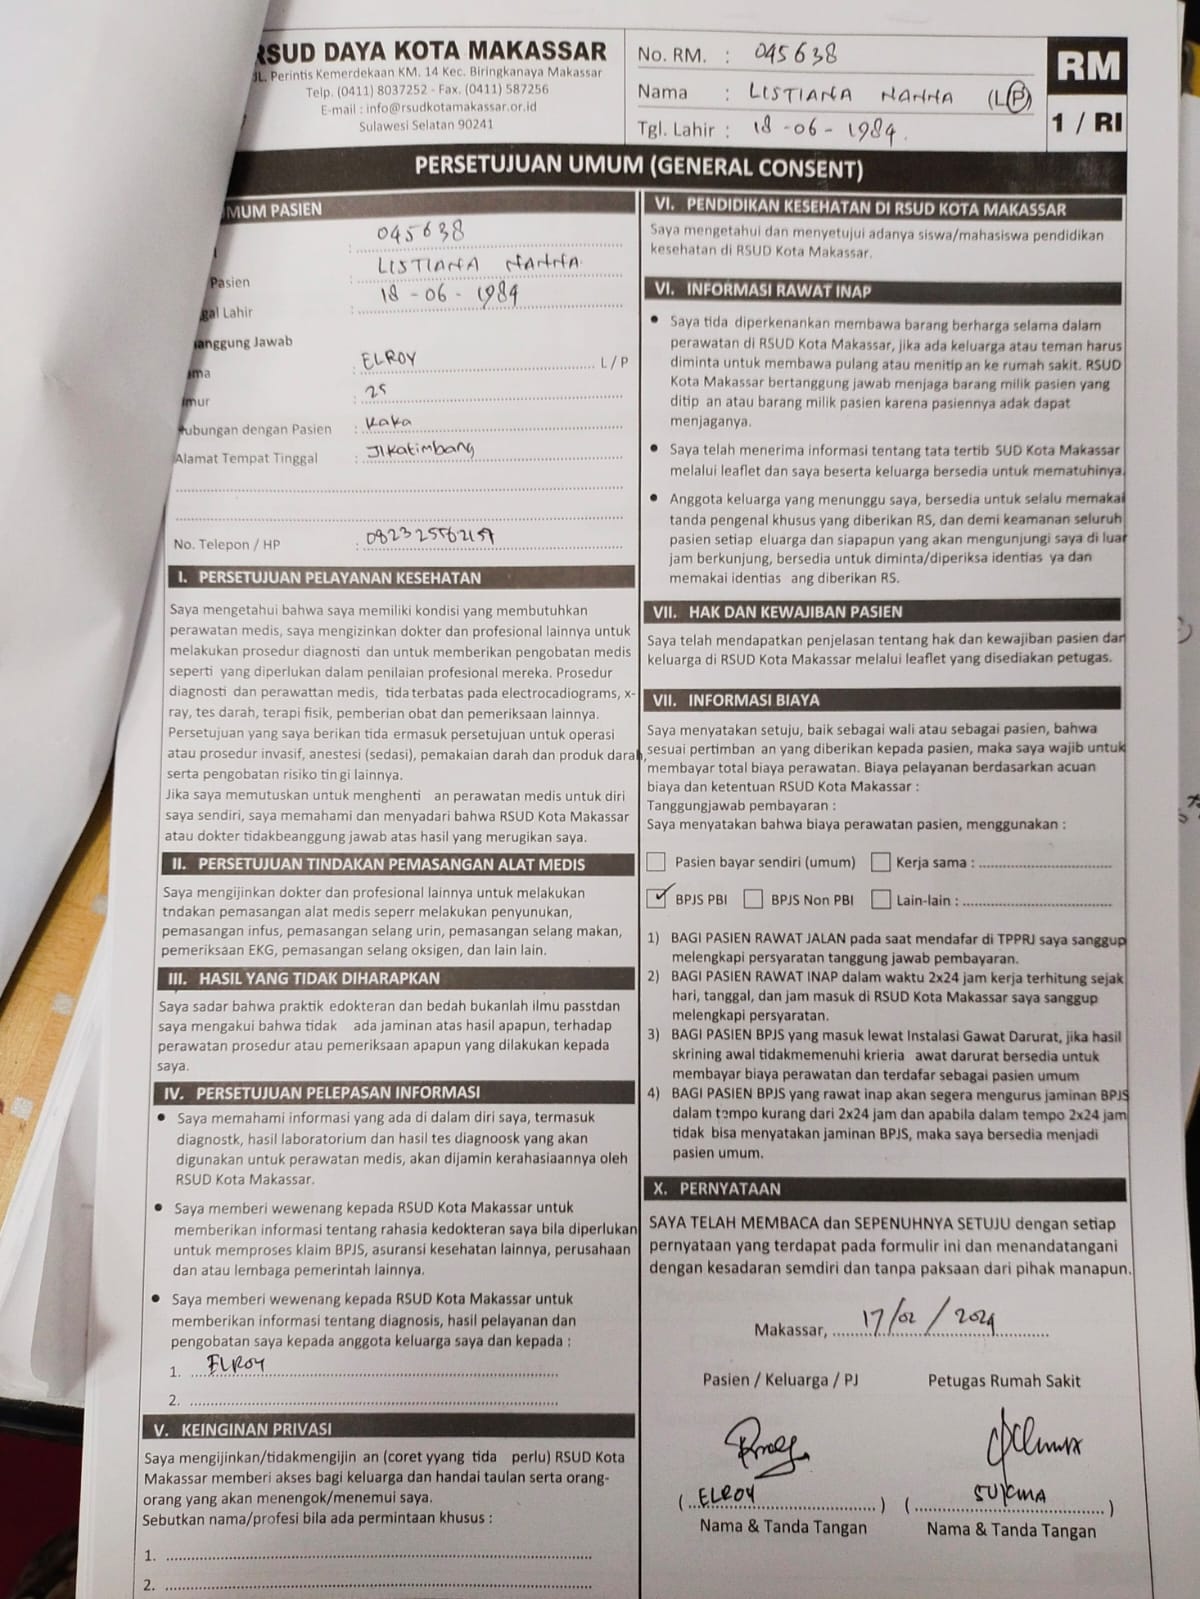 RSUD DAYA KOTA MAKASSAR
JL. Perintis Kemerdekaan KM. 14 Kec. Biringkanaya Makassar
Telp. (0411) 8037252 - Fax. (0411) 587256
E-mail : info@rsudkotamakassar.or.id
Sulawesi Selatan 90241
No. RM. : 045638
Nama : LISTIANA NANNA (L/P)
Tgl. Lahir : 18-06-1984.
RM
1 / RI
PERSETUJUAN UMUM (GENERAL CONSENT)
UMUM PASIEN
045638
Pasien : LISTIANA NANNA
gal Lahir : 18-06-1984
anggung Jawab
ama : ELROY L / P
mur : 25
ubungan dengan Pasien : Kaka
Alamat Tempat Tinggal : Jl katimbang
No. Telepon / HP :
I. PERSETUJUAN PELAYANAN KESEHATAN
Saya mengetahui bahwa saya memiliki kondisi yang membutuhkan
perawatan medis, saya mengizinkan dokter dan profesional lainnya untuk
melakukan prosedur diagnosti dan untuk memberikan pengobatan medis
seperti yang diperlukan dalam penilaian profesional mereka. Prosedur
diagnosti dan perawattan medis, tida terbatas pada electrocadiograms, x-
ray, tes darah, terapi fisik, pemberian obat dan pemeriksaan lainnya.
Persetujuan yang saya berikan tida ermasuk persetujuan untuk operasi
atau prosedur invasif, anestesi (sedasi), pemakaian darah dan produk darah,
serta pengobatan risiko tin gi lainnya.
Jika saya memutuskan untuk menghenti an perawatan medis untuk diri
saya sendiri, saya memahami dan menyadari bahwa RSUD Kota Makassar
atau dokter tidakbeanggung jawab atas hasil yang merugikan saya.
II. PERSETUJUAN TINDAKAN PEMASANGAN ALAT MEDIS
Saya mengijinkan dokter dan profesional lainnya untuk melakukan
tndakan pemasangan alat medis seperr melakukan penyunukan,
pemasangan infus, pemasangan selang urin, pemasangan selang makan,
pemeriksaan EKG, pemasangan selang oksigen, dan lain lain.
III. HASIL YANG TIDAK DIHARAPKAN
Saya sadar bahwa praktik edokteran dan bedah bukanlah ilmu passtdan
saya mengakui bahwa tidak ada jaminan atas hasil apapun, terhadap
perawatan prosedur atau pemeriksaan apapun yang dilakukan kepada
saya.
IV. PERSETUJUAN PELEPASAN INFORMASI
• Saya memahami informasi yang ada di dalam diri saya, termasuk
diagnostk, hasil laboratorium dan hasil tes diagnoosk yang akan
digunakan untuk perawatan medis, akan dijamin kerahasiaannya oleh
RSUD Kota Makassar.
• Saya memberi wewenang kepada RSUD Kota Makassar untuk
memberikan informasi tentang rahasia kedokteran saya bila diperlukan
untuk memproses klaim BPJS, asuransi kesehatan lainnya, perusahaan
dan atau lembaga pemerintah lainnya.
• Saya memberi wewenang kepada RSUD Kota Makassar untuk
memberikan informasi tentang diagnosis, hasil pelayanan dan
pengobatan saya kepada anggota keluarga saya dan kepada :
1. ELROY
2.
V. KEINGINAN PRIVASI
Saya mengijinkan/tidakmengijin an (coret yyang tida perlu) RSUD Kota
Makassar memberi akses bagi keluarga dan handai taulan serta orang-
orang yang akan menengok/menemui saya.
Sebutkan nama/profesi bila ada permintaan khusus :
1.
2.
VI. PENDIDIKAN KESEHATAN DI RSUD KOTA MAKASSAR
Saya mengetahui dan menyetujui adanya siswa/mahasiswa pendidikan
kesehatan di RSUD Kota Makassar.
VI. INFORMASI RAWAT INAP
• Saya tida diperkenankan membawa barang berharga selama dalam
perawatan di RSUD Kota Makassar, jika ada keluarga atau teman harus
diminta untuk membawa pulang atau menitip an ke rumah sakit. RSUD
Kota Makassar bertanggung jawab menjaga barang milik pasien yang
ditip an atau barang milik pasien karena pasiennya adak dapat
menjaganya.
• Saya telah menerima informasi tentang tata tertib SUD Kota Makassar
melalui leaflet dan saya beserta keluarga bersedia untuk mematuhinya.
• Anggota keluarga yang menunggu saya, bersedia untuk selalu memakai
tanda pengenal khusus yang diberikan RS, dan demi keamanan seluruh
pasien setiap eluarga dan siapapun yang akan mengunjungi saya di luar
jam berkunjung, bersedia untuk diminta/diperiksa identias ya dan
memakai identias ang diberikan RS.
VII. HAK DAN KEWAJIBAN PASIEN
Saya telah mendapatkan penjelasan tentang hak dan kewajiban pasien dan
keluarga di RSUD Kota Makassar melalui leaflet yang disediakan petugas.
VII. INFORMASI BIAYA
Saya menyatakan setuju, baik sebagai wali atau sebagai pasien, bahwa
sesuai pertimban an yang diberikan kepada pasien, maka saya wajib untuk
membayar total biaya perawatan. Biaya pelayanan berdasarkan acuan
biaya dan ketentuan RSUD Kota Makassar :
Tanggungjawab pembayaran :
Saya menyatakan bahwa biaya perawatan pasien, menggunakan :
Pasien bayar sendiri (umum) Kerja sama :
✓ BPJS PBI BPJS Non PBI Lain-lain :
1) BAGI PASIEN RAWAT JALAN pada saat mendafar di TPPRJ saya sanggup
melengkapi persyaratan tanggung jawab pembayaran.
2) BAGI PASIEN RAWAT INAP dalam waktu 2x24 jam kerja terhitung sejak
hari, tanggal, dan jam masuk di RSUD Kota Makassar saya sanggup
melengkapi persyaratan.
3) BAGI PASIEN BPJS yang masuk lewat Instalasi Gawat Darurat, jika hasil
skrining awal tidakmemenuhi krieria awat darurat bersedia untuk
membayar biaya perawatan dan terdafar sebagai pasien umum
4) BAGI PASIEN BPJS yang rawat inap akan segera mengurus jaminan BPJS
dalam tempo kurang dari 2x24 jam dan apabila dalam tempo 2x24 jam
tidak bisa menyatakan jaminan BPJS, maka saya bersedia menjadi
pasien umum.
X. PERNYATAAN
SAYA TELAH MEMBACA dan SEPENUHNYA SETUJU dengan setiap
pernyataan yang terdapat pada formulir ini dan menandatangani
dengan kesadaran semdiri dan tanpa paksaan dari pihak manapun.
Makassar, 17/02/2024
Pasien / Keluarga / PJ Petugas Rumah Sakit
(ELROY) (SUKMA)
Nama & Tanda Tangan Nama & Tanda Tangan